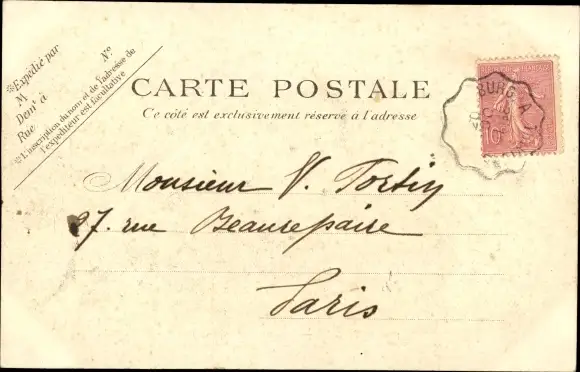 *Expédié par
M
N°
Demt à
Rue
*L'inscription du nom et de l'adresse de
l'expéditeur est facultative
CARTE POSTALE
Ce côté est exclusivement réservé à l'adresse
BURG A
10
Monsieur V. Fortin
27. rue Beaurepaire
Paris